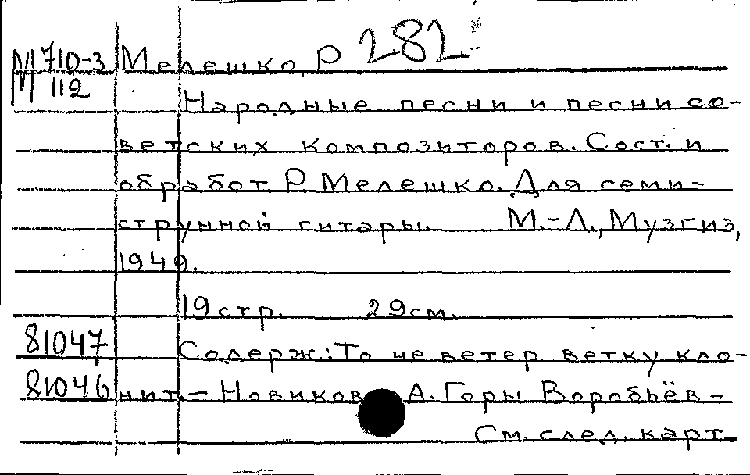 М 710-3 Мелешко, Р 282
112
Народные песни и песни со-
ветских композиторов. Сост. и
обработ. Р. Мелешко. Для семи-
струнной гитары. М.-Л., Музгиз,
1949.
19 стр. 29 см.
81047 Содерж: То не ветер ветку кло-
81046 нит. - Новиков А. Горы Воробьёв-
См. след. карт.